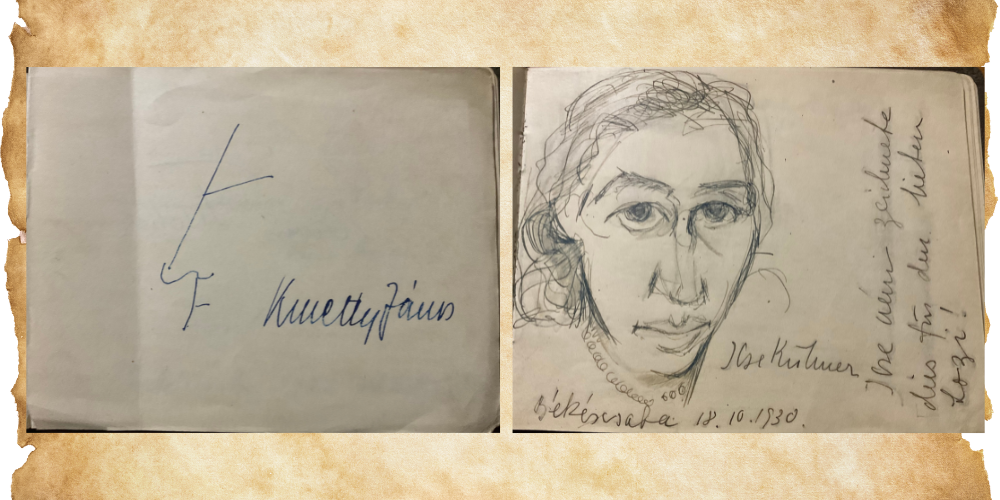 Kmetty János
Ilse Kühner
Békéscsaba 18.10.1930.
Ilse néni zeichnete
dies für den lieben
Lozi!